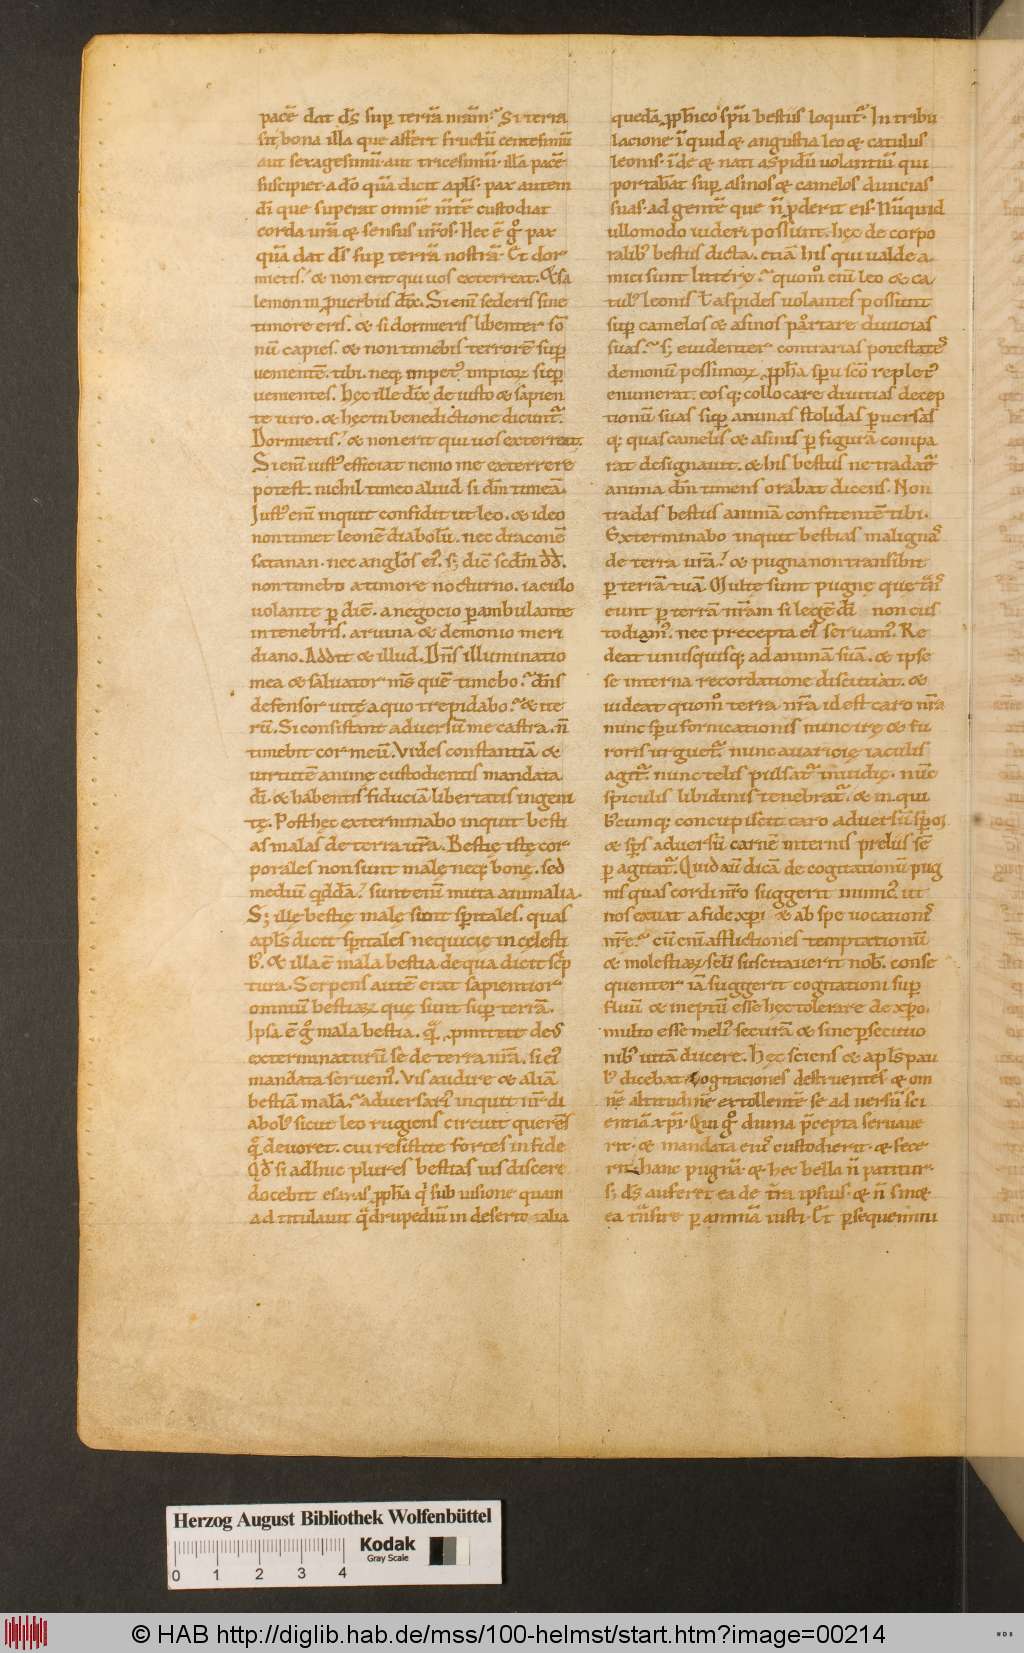 pacē dat dſ̄ ſuꝑ terrā n̄ram. Si terra
ſit bona illa que affert fructū centeſimū
aut sexageſimū aut triceſimū. illa pacē
ſuſcipiet a dō quā dicit apl̄s. pax autem
dī que superat omnē m̄tē custodiat
corda ur̄a & senſus ur̄os. Hec ē gͦ pax
quā dat dſ̄ ſuꝑ terrā noſtrā. Et dor
mietis. & non erit qui uos exterreat. & sa
lemon in ꝓuerbiis dix̄. Si enī sederis ſine
timore eris. & si dormieris libenter sō
nū capies. & non timebis terrorē suꝑ
uenientē tibi. neq; impetꝰ impioꝝ suꝑ
uenientes. hęc ille dix̄ de iuſto & sapien
te uiro. & hęc in benedictione dicunt᷑.
Dormietis. & non erit qui uos exterreat.
Si enī iuſtꝰ efficiat nemo me exterrere
poteſt. nichil timeo aliud si dm̄ timeā.
Juſtꝰ enī inquit confidit ut leo. & ideo
non timet leonē diabolū. nec draconē
satanan. nec angl̄os eiꝰ. s; dic̄ scdm̄ dd̄.
non timebo a timore nocturno. iaculo
uolante ꝑ diē. a negocio ꝑambulante
in tenebris. a ruina & demonio meri
diano. Addit & illud. Dn̄s illuminatio
mea & saluator mſ̄ quē timebo. dn̄s
defensor uitę a quo trepidabo. & ite
rū. Si conſiſtant aduersū me caſtra. n̄
timebit cor meū. Vides conſtantiā &
uirtutē animę cuſtodientis mandata
dī. & habentis fiduciā libertatis ingeni
tę. Poſt hęc exterminabo inquit beſti
as malas de terra ur̄a. Beſtię iſtę cor
porales non sunt malę neq; bonę. sed
mediū qd̄dā. sunt enī muta animalia.
S; illę beſtię malę sunt spitales. quas
apl̄s dicit spitales nequicię in celeſti
bꝰ. & illa ē mala beſtia de qua dicit sc̄p
tura. Serpens autē erat sapientior
omniū beſtiaꝝ quę sunt suꝑ terrā.
Ipsa ē gͦ mala beſtia. quā promittit dſ̄
exterminaturū se de terra nr̄a. si eiꝰ
mandata seruemꝰ. Vis audire & aliā
beſtiā malā. aduersariꝰ inquit nr̄ di
abolꝰ sicut leo rugiens circuit querēs
quē deuoret. cui reſiſtite fortes in fide
Qd̄ si adhuc plures beſtias uis discere
docebit esaias ꝓpha qui sub uisione quam
ad titulauit quadrupediū in deserto talia
quedā ꝓphico spū beſtiis loquit᷑. In tribu
lacione inquid & anguſtia leo & catulus
leonis. īde & nati aspidū uolantiū qui
portabāt suꝑ asinos & camelos diuicias
suas. ad gentē que n̄ ꝓderit eis. Nūquid
ullomodo uideri possunt hęc de corpo
ralibꝰ beſtiis dicta. etiā his qui ualde a
mici sunt littere. quomō enī leo & ca
tulꝰ leonis l̄ aspides uolantes possunt
suꝑ camelos & asinos portare diuicias
suas. s; euidenter contrarias poteſtates
demonū peſſimoꝝ ꝓpha spu scō repletꝰ
enumerat. eosq; collocare diuitias decep
tionū suas suꝑ animas ſtolidas ꝑuersas
q; quas camelis & asinis ꝑ figurā compa
rat deſignauit. & his beſtiis ne tradat᷑
anima dm̄ timens orabat dicens. Non
tradas beſtiis animā confitentē tibi.
Exterminabo inquit beſtias malignas
de terra ur̄a. & pugna non transibit
ꝑ terrā tuā. Multę sunt pugnę que trans
eunt ꝑ terrā nr̄am si legē dī non cus
todiamꝰ. nec precepta eiꝰ seruamꝰ. Re
deat unusquisq; ad animā suā. & ipse
se interna recordatione discutiat. &
uideat quomō terra nr̄a id eſt caro nr̄a
nunc spu fornicationis nunc irę & fu
roris urguet᷑. nunc auaricię iaculis
agit᷑. nunc telis pulsat᷑ inuidię. nūc
spiculis libidinis tenebrat᷑. & in qui
bꝰcumq; concupiscit caro aduersū spm.
& sp̄s aduersū carnē internis preliis sē
ꝑ agitat᷑. Quid autē dicā de cogitationū pug
nis quas cordi nr̄o suggerit inimicꝰ. ut
nos exuat a fide xp̄i & ab spe uocationis
nr̄e. cū enī afflictiones temptationū
& moleſtiaꝝ sēl suscitauerit nob̄. conse
quenter iā suggerit cogitationi suꝑ
fluū & ineptū esse hęc tolerare de xp̄o.
multo esse meliꝰ securā & sine ꝑsecutio
nibꝰ uitā ducere. Hęc sciens & apl̄s pau
lꝰ dicebat. Cogitaciones deſtruentes & om
nē altitudinē extollentē se ad uersū sci
entiā xp̄i. Qui gͦ diuina ꝑcepta seruaue
rit. & mandata eiꝰ cuſtodierit. & fece
rit hanc pugnā. & hec bella n̄ patitur.
s; dſ̄ auferet ea de tr̄a ipsius. & n̄ sinet
ea trāsire ꝑ animā iuſti. Et ꝑsequemini
Herzog August Bibliothek Wolfenbüttel
Kodak
Gray Scale
0 1 2 3 4
© HAB http://diglib.hab.de/mss/100-helmst/start.htm?image=00214